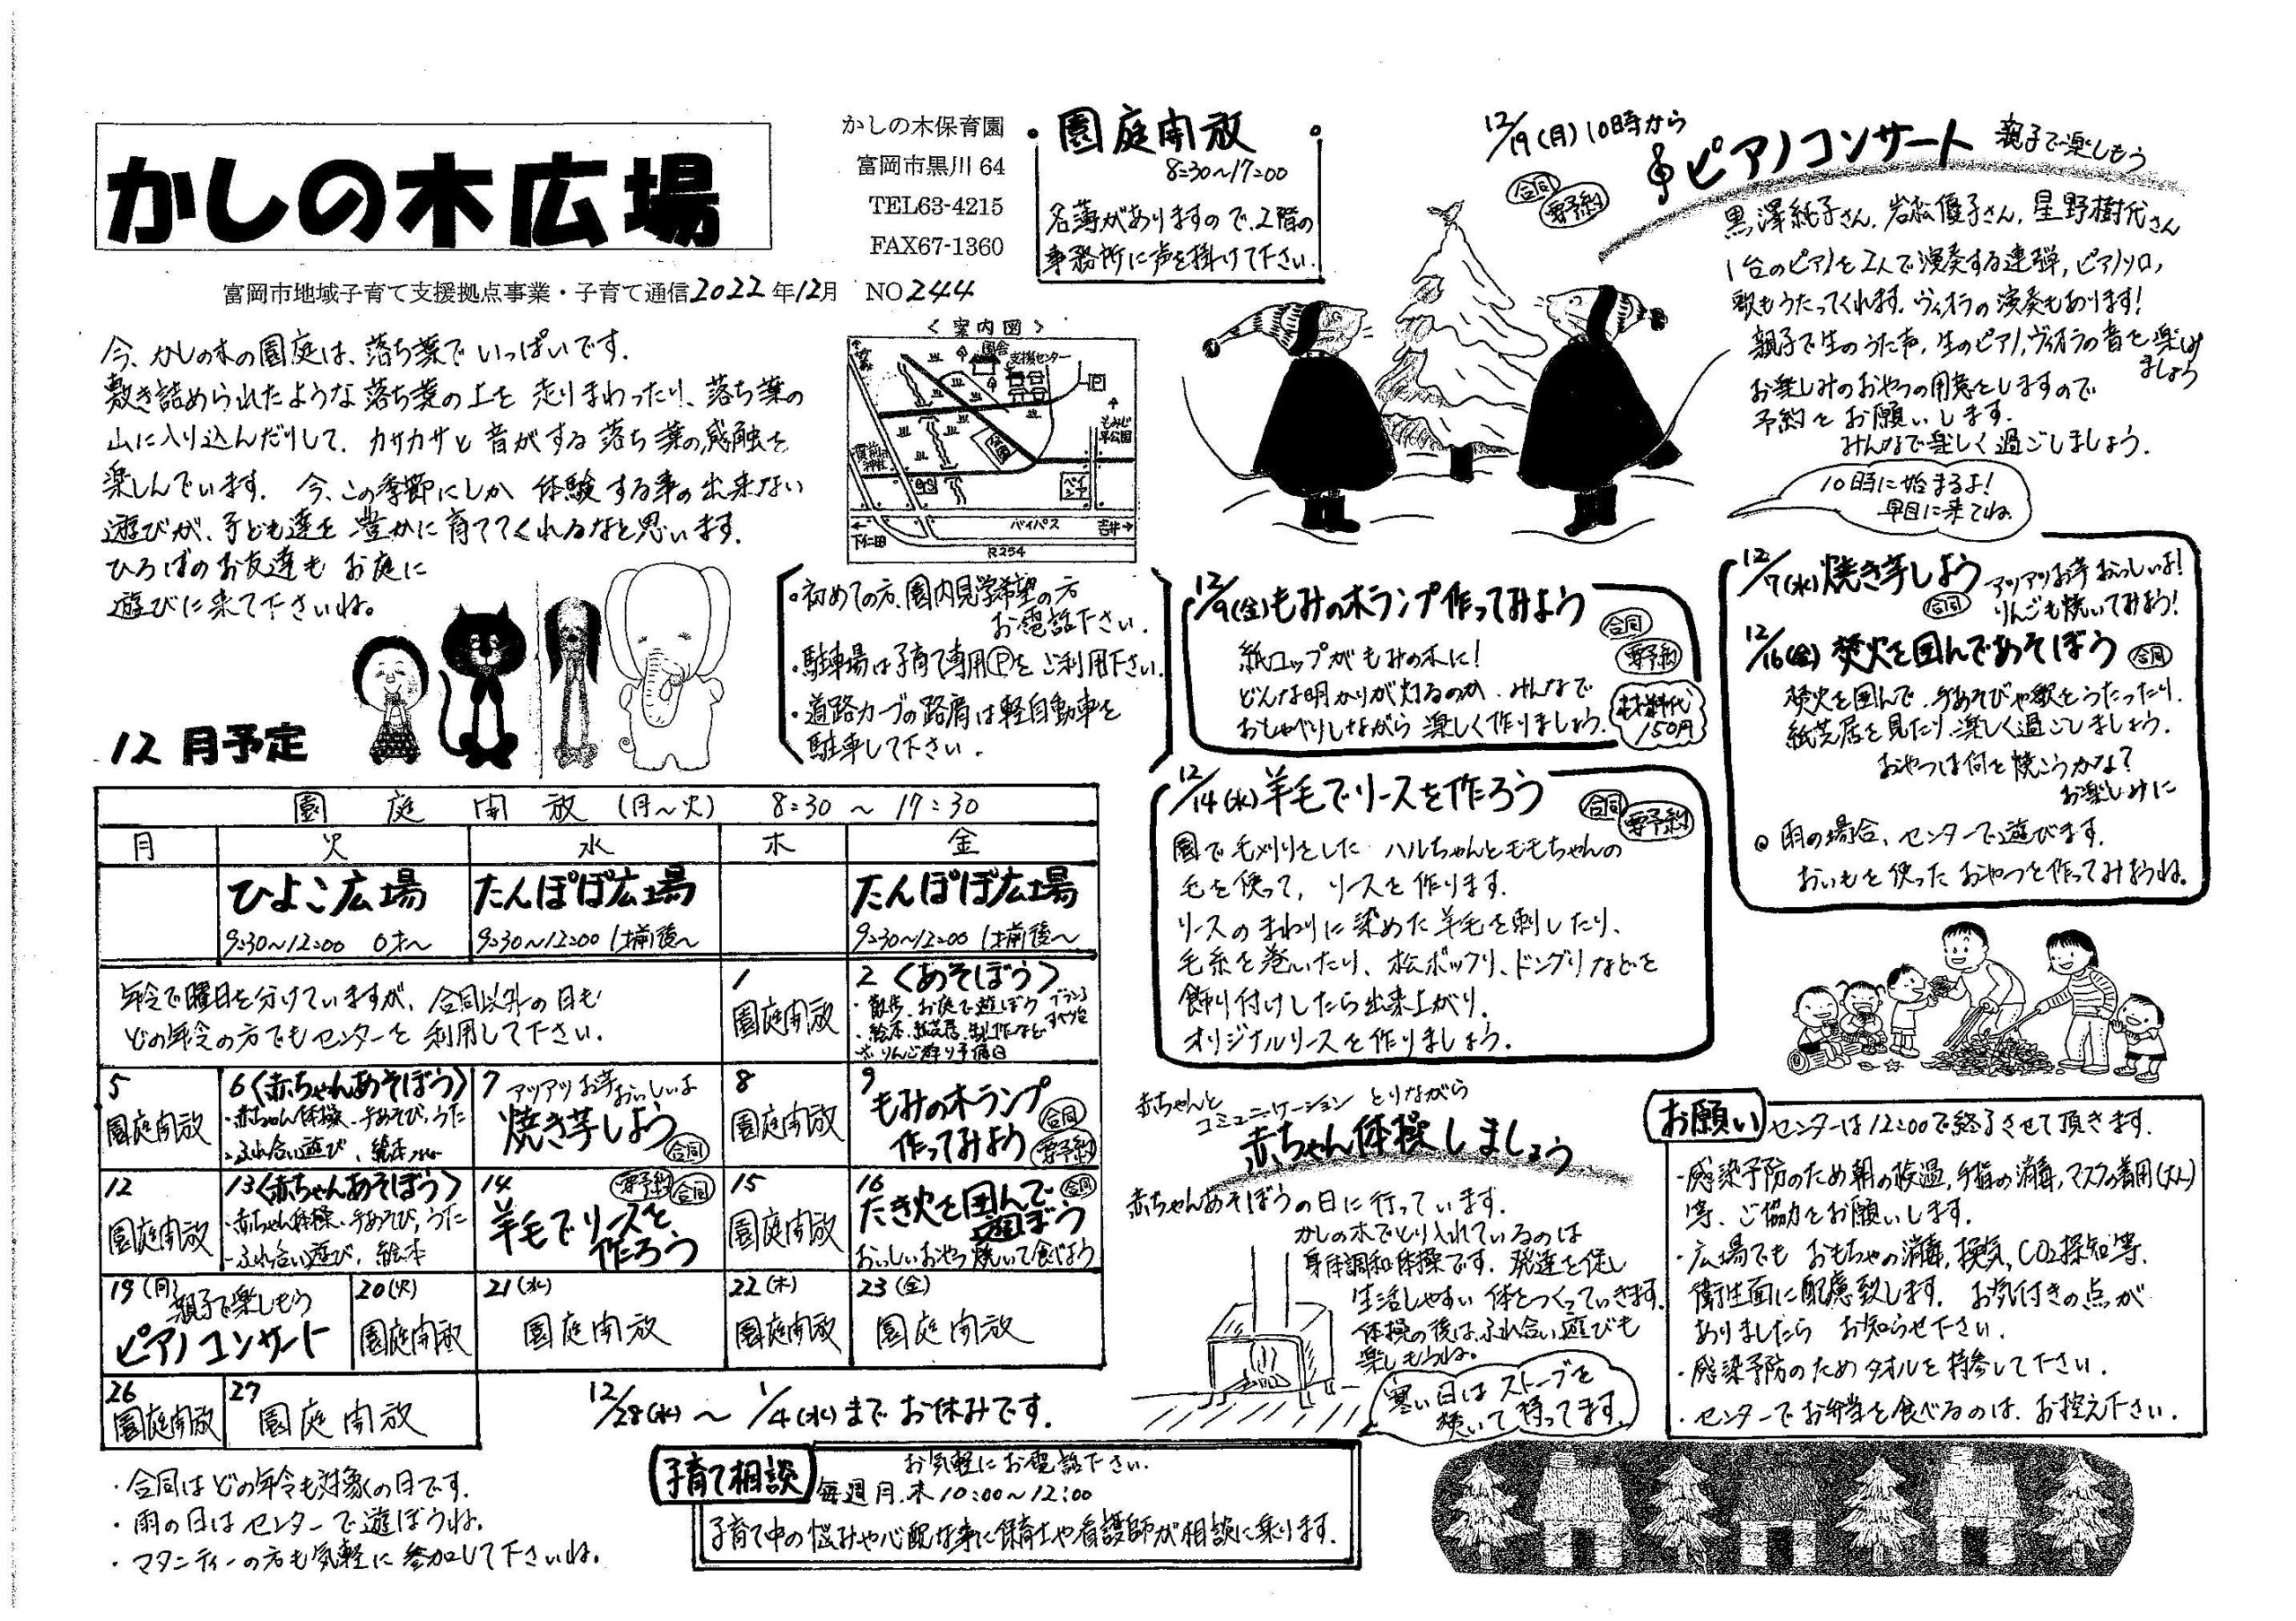 かしの木広場
かしの木保育園
富岡市黒川 64
TEL63-4215
FAX67-1360
富岡市地域子育て支援拠点事業・子育て通信2022年12月 NO244
園庭開放
8:30～17:00
名簿がありますので、2階の
事務所に声を掛けて下さい。
12/19(月)10時から
合同
要予約
ピアノコンサート 親子で楽しもう
黒澤純子さん、岩松優子さん、星野樹代さん
1台のピアノを2人で演奏する連弾、ピアノソロ、
歌もうたってくれます。ヴィオラの演奏もあります!
親子で生のうた声、生のピアノ、ヴィオラの音を楽しみ
ましょう
お楽しみのおやつの用意をしますので
予約をお願いします。
みんなで楽しく過ごしましょう。
10時に始まるよ!
早目に来てね。
今、かしの木の園庭は、落ち葉でいっぱいです。
敷き詰められたような落ち葉の上を走りまわったり、落ち葉の
山に入り込んだりして、カサカサと音がする落ち葉の感触を
楽しんでいます。 今、この季節にしか体験する事の出来ない
遊びが、子ども達を豊かに育ててくれるなと思います。
ひろばのお友達もお庭に
遊びに来て下さいね。
＜案内図＞
園舎
支援センター
もみじ平公園
貫前神社
ベイシア
バイパス
吉井→
下仁田
R254
・初めての方、園内見学希望の方
お電話下さい。
・駐車場は子育て専用Ⓟをご利用下さい。
・道路カーブの路肩は軽自動車を
駐車して下さい。
12/9(金)もみの木ランプ作ってみよう
合同
要予約
材料代
150円
紙コップがもみの木に!
どんな明かりが灯るのか、みんなで
おしゃべりしながら楽しく作りましょう。
12/7(水)焼き芋しよう
合同
アツアツお芋おいしいよ!
りんごも焼いてみよう!
12/16(金)焚火を囲んであそぼう 合同
焚火を囲んで、手あそびや歌をうたったり、
紙芝居を見たり、楽しく過ごしましょう。
おやつは何を焼こうかな?
お楽しみに
◎雨の場合、センターで遊びます。
おいもを使ったおやつを作ってみようね。
12/14(水)羊毛でリースを作ろう
合同
要予約
園で毛刈りをした ハルちゃんとモモちゃんの
毛を使って、リースを作ります。
リースのまわりに染めた羊毛を刺したり、
毛糸を巻いたり、松ボックリ、ドングリなどを
飾り付けしたら出来上がり。
オリジナルリースを作りましょう。
12月予定
園庭開放(月～火) 8:30～17:30
月 火 水 木 金
ひよこ広場
9:30～12:00 0才～
たんぽぽ広場
9:30～12:00 1才前後～
たんぽぽ広場
9:30～12:00 1才前後～
年令で曜日を分けていますが、合同以外の日も
どの年令の方でもセンターを利用して下さい。
1
園庭開放
2＜あそぼう＞
・散歩、お庭で遊ぼう ブランコ
・絵本、紙芝居、製作など すべり台
※りんご狩り予備日
5
園庭開放
6＜赤ちゃんあそぼう＞
・赤ちゃん体操、手あそび、うた
・ふれ合い遊び、絵本
7 アツアツお芋おいしいよ
焼き芋しよう
合同
8
園庭開放
9
もみの木ランプ
作ってみよう
合同
要予約
12
園庭開放
13＜赤ちゃんあそぼう＞
・赤ちゃん体操、手あそび、うた
・ふれ合い遊び、絵本
14
要予約 合同
羊毛でリースを
作ろう
15
園庭開放
16
合同
たき火を囲んで
遊ぼう
おいしいおやつ焼いて食べよう
19(月)
親子で楽しもう
ピアノコンサート
20(火)
園庭開放
21(水)
園庭開放
22(木)
園庭開放
23(金)
園庭開放
26
園庭開放
27
園庭開放
12/28(水)～1/4(水)までお休みです。
・合同はどの年令も対象の日です。
・雨の日はセンターで遊ぼうね。
・マタニティーの方も気軽に参加して下さいね。
子育て相談
お気軽にお電話下さい。
毎週月、木 10:00～12:00
子育て中の悩みや心配な事に保育士や看護師が相談に乗ります。
赤ちゃんと
コミュニケーションとりながら
赤ちゃん体操しましょう
赤ちゃんあそぼうの日に行っています。
かしの木でとり入れているのは
身体調和体操です。発達を促し
生活しやすい体をつくっていきます。
体操の後は、ふれ合い遊びも
楽しもうね。
寒い日はストーブを
焚いて待ってます。
お願い
センターは12:00で終了させて頂きます。
・感染予防のため朝の検温、手指の消毒、マスクの着用(大人)
等、ご協力をお願いします。
・広場でも おもちゃの消毒、換気、CO2探知等、
衛生面に配慮致します。 お気付きの点が
ありましたら お知らせ下さい。
・感染予防のためタオルを持参して下さい。
・センターでお弁当を食べるのは、お控え下さい。